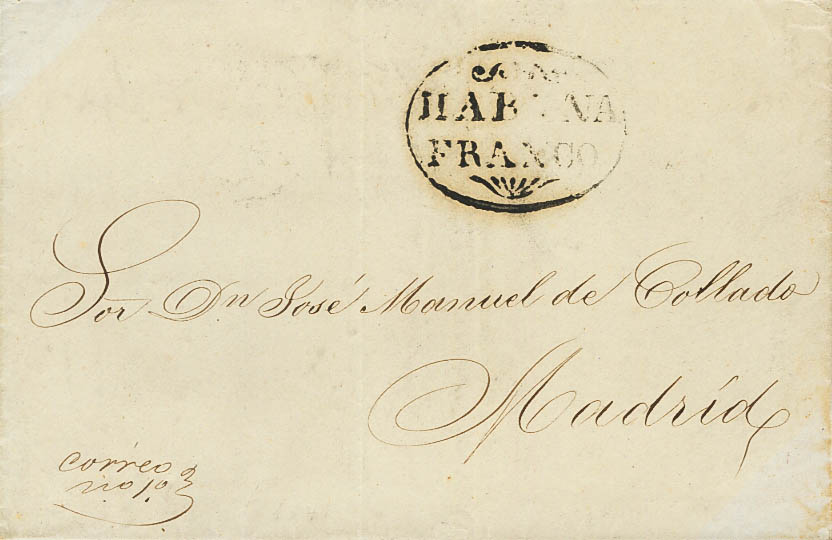 HABANA
FRANCO
Sor Dn José Manuel de Collado
Madrid
correo
no 1o